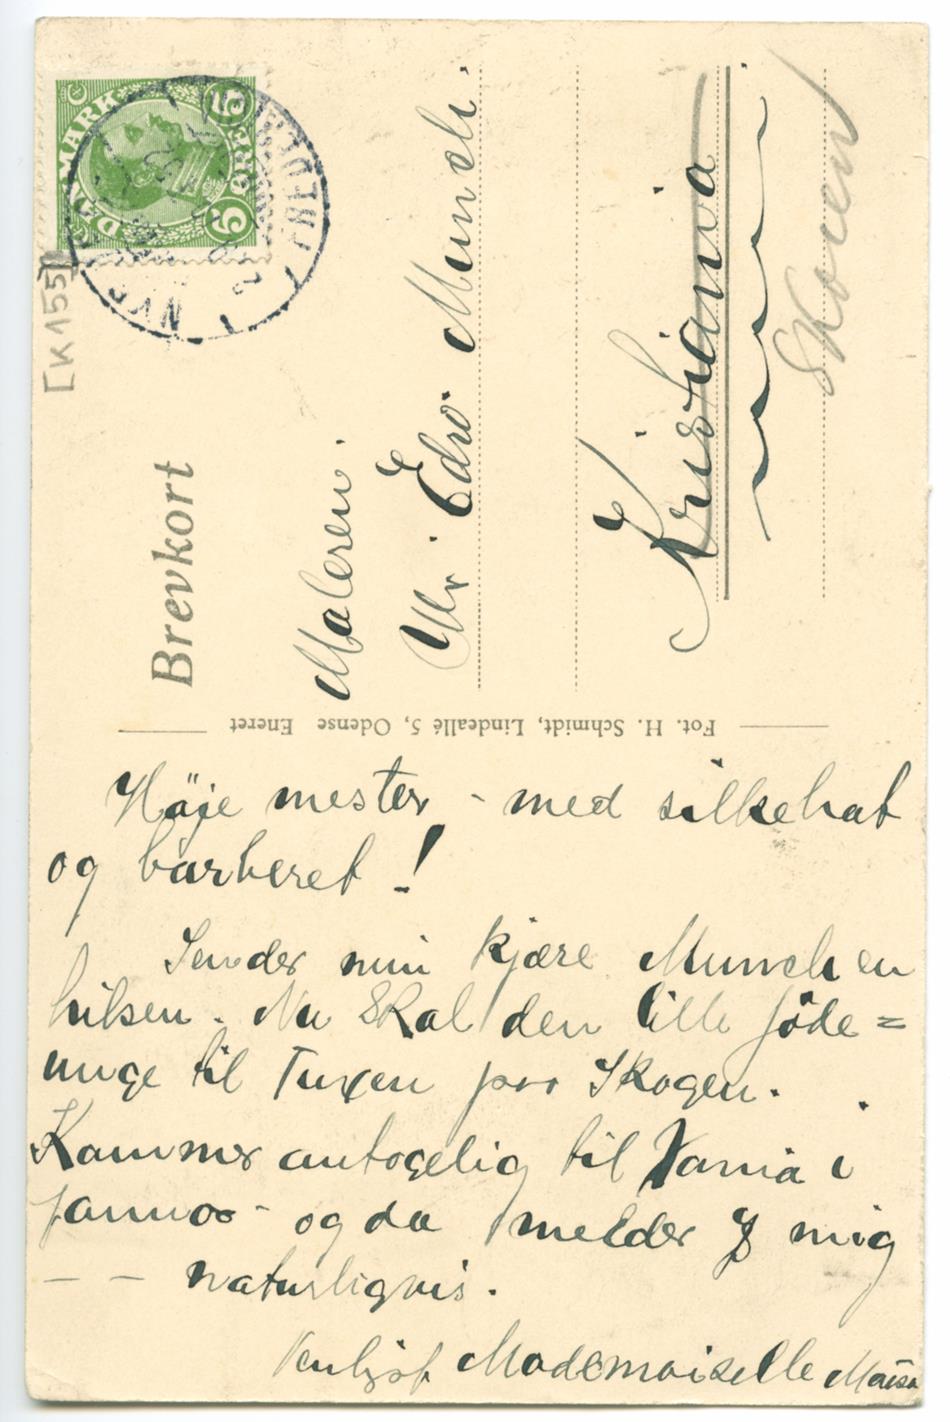 DANMARK
5 ØRE 5
NYB
[K 155]
Brevkort
Maleren.
Hr. Edv Munch.
Kristiania
Skøien
Fot. H. Schmidt, Lindeallé 5, Odense Eneret
Höje mester - med silkehat
og barberet!
Sender min kjære Munch en
hilsen. Nu skal den lille jöde=
unge til Tuxen paa Skagen.
Kommer antagelig til Xania i
januar - og da melder jeg mig
— — naturligvis.
Venligst Mademoiselle Maisa